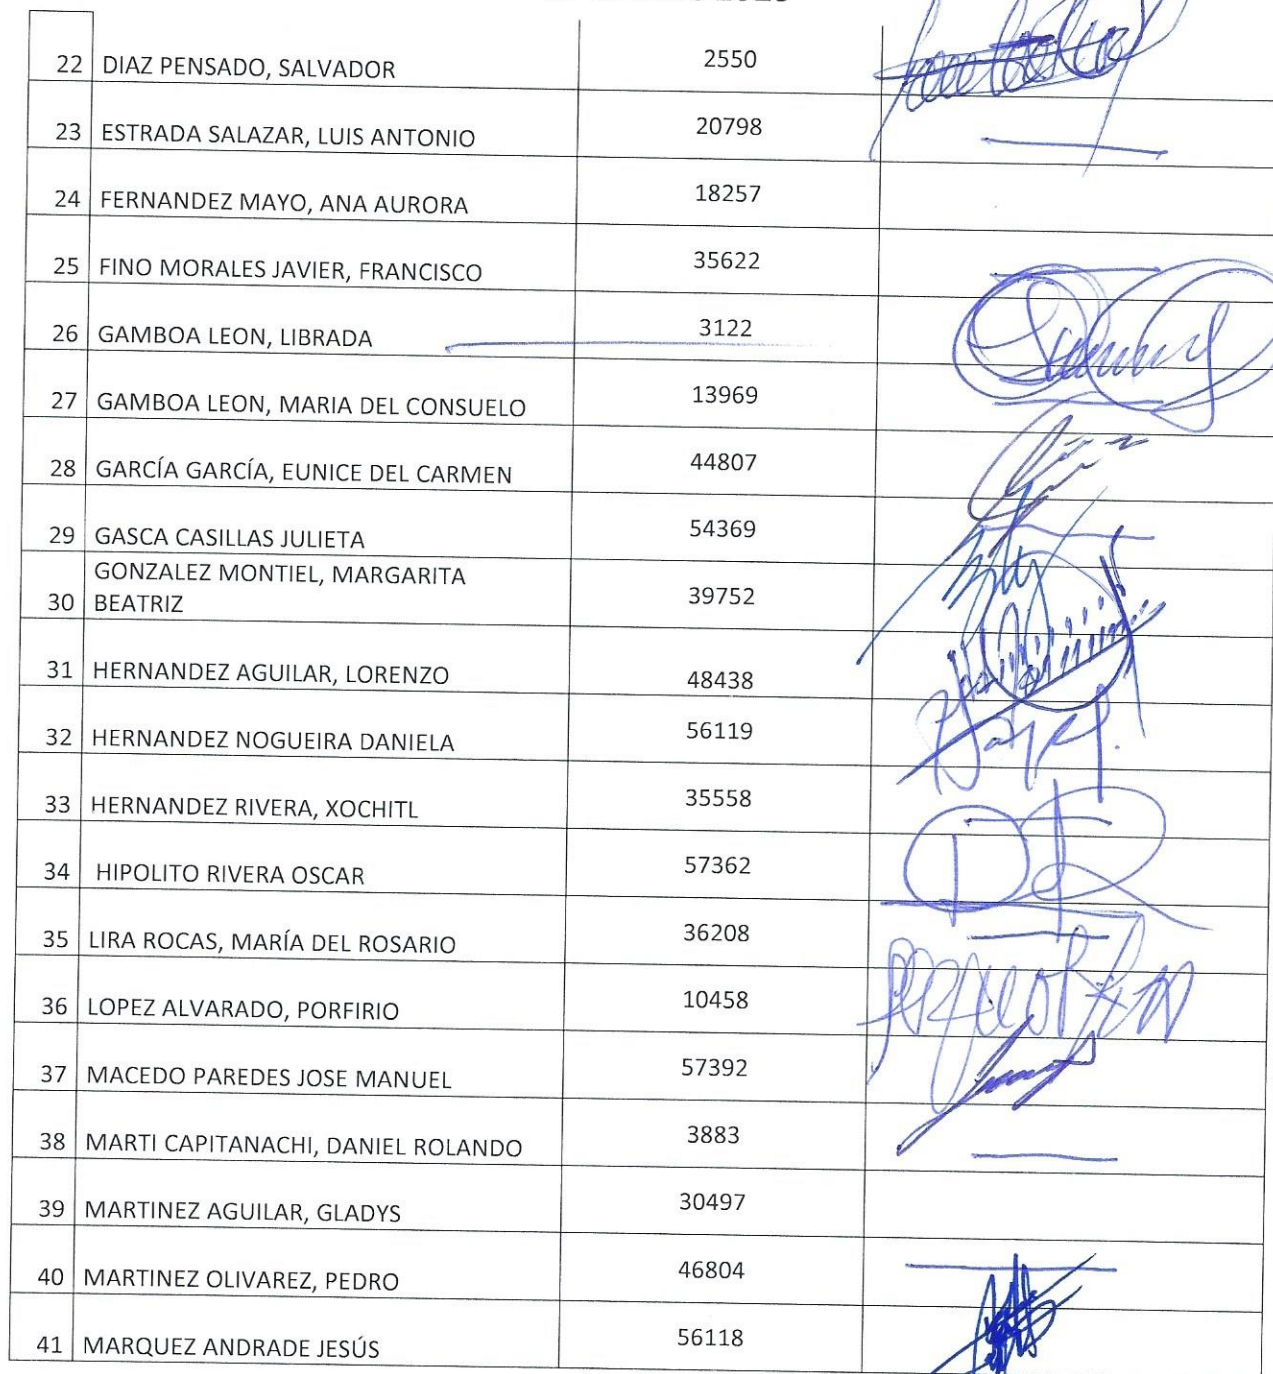 22 DIAZ PENSADO, SALVADOR 2550
23 ESTRADA SALAZAR, LUIS ANTONIO 20798
24 FERNANDEZ MAYO, ANA AURORA 18257
25 FINO MORALES JAVIER, FRANCISCO 35622
26 GAMBOA LEON, LIBRADA 3122
27 GAMBOA LEON, MARIA DEL CONSUELO 13969
28 GARCÍA GARCÍA, EUNICE DEL CARMEN 44807
29 GASCA CASILLAS JULIETA 54369
GONZALEZ MONTIEL, MARGARITA
30 BEATRIZ 39752
31 HERNANDEZ AGUILAR, LORENZO 48438
32 HERNANDEZ NOGUEIRA DANIELA 56119
33 HERNANDEZ RIVERA, XOCHITL 35558
34 HIPOLITO RIVERA OSCAR 57362
35 LIRA ROCAS, MARÍA DEL ROSARIO 36208
36 LOPEZ ALVARADO, PORFIRIO 10458
37 MACEDO PAREDES JOSE MANUEL 57392
38 MARTI CAPITANACHI, DANIEL ROLANDO 3883
39 MARTINEZ AGUILAR, GLADYS 30497
40 MARTINEZ OLIVAREZ, PEDRO 46804
41 MARQUEZ ANDRADE JESÚS 56118